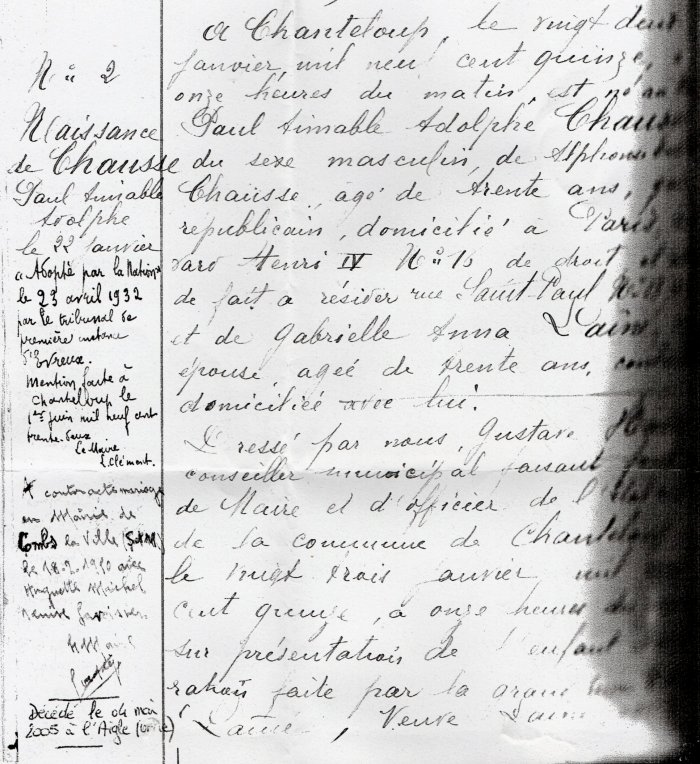 N° 2
Naissance
de Chausse
Paul Aimable
Adolphe
le 22 Janvier
Adopté par la Nation
le 23 avril 1932
par le tribunal de
première instance
d'Evreux.
Mention faite à
Chanteloup le
1er juin mil neuf cent
trente-deux
Le Maire
L. Clément.
contracté mariage
en Mairie de
Combs la Ville (S&M)
le 18.2.1950 avec
Huguette Michel
Denise
Le Maire
Décédé le 04 mai
2005 à l'Aigle (Orne)
A Chanteloup, le vingt deux
janvier mil neuf cent quinze,
onze heures du matin, est né
Paul Aimable Adolphe Chausse
du sexe masculin, de Alphonse
Chausse, agé de trente ans,
républicain, domicilié à Paris,
vard Henri IV N° 16 de droit et
de fait a résider rue Saint-Paul
et de Gabrielle Anna Lainé
épouse, ageé de trente ans,
domiciliée avec lui.
Dressé par nous, Gustave
conseiller municipal faisant
de Maire et d'officier de l'
de la commune de Chanteloup
le vingt trois janvier mil
cent quinze, à onze heures du
sur présentation de l'enfant
ration faite par la grand
Lainé, Veuve Lainé